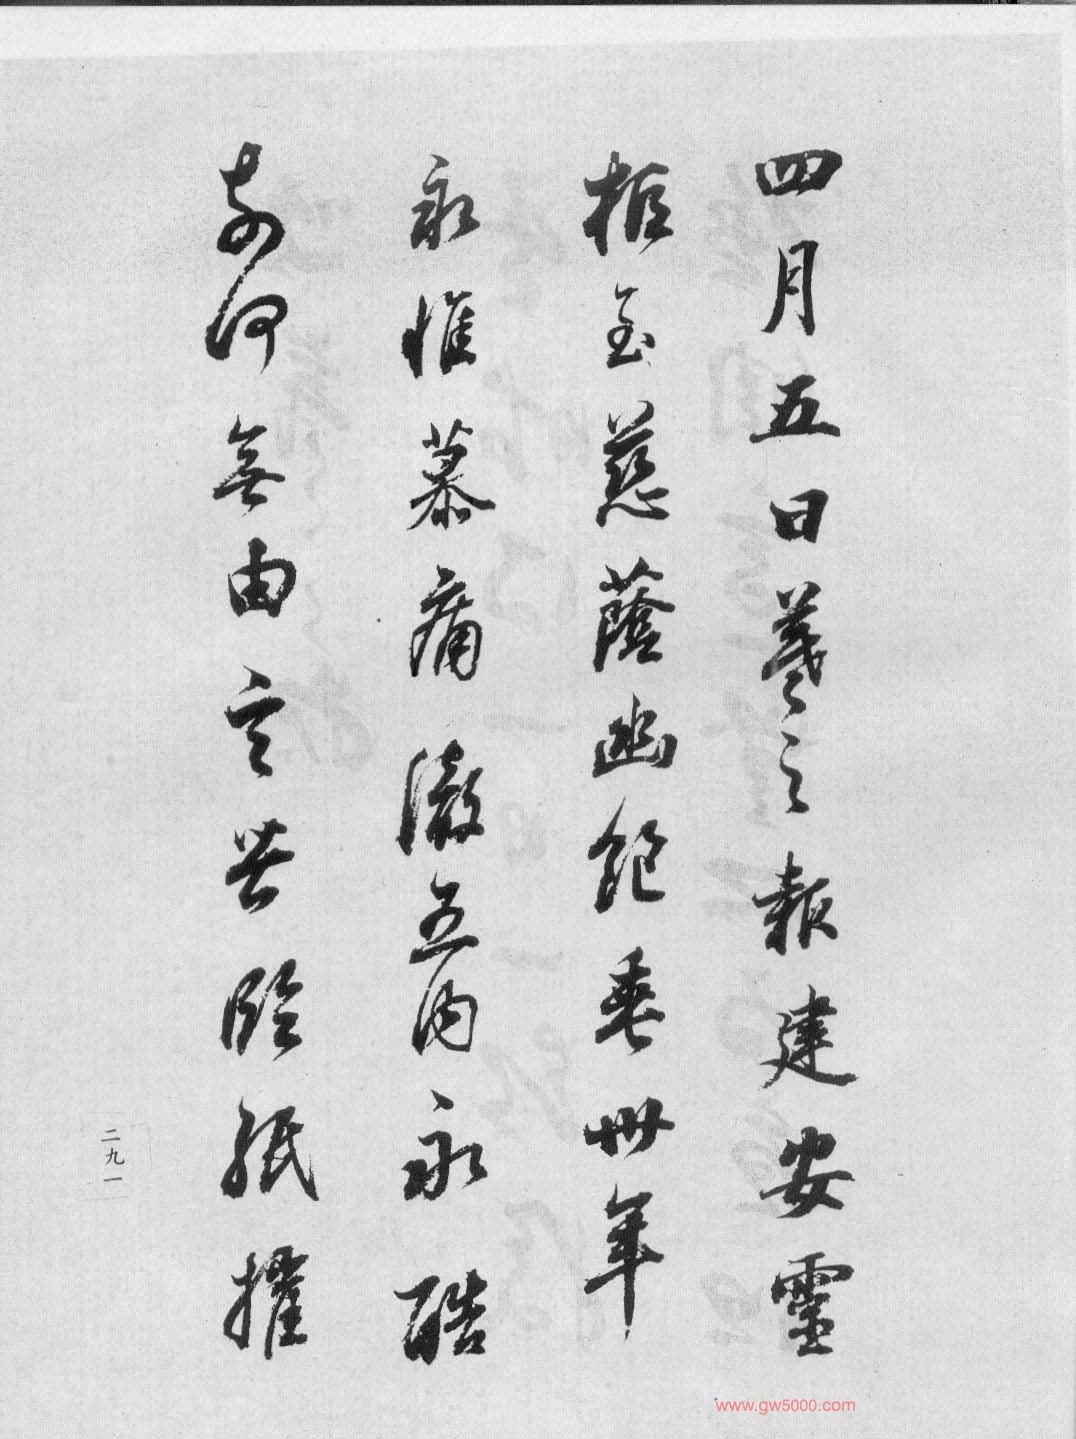 四月五日羲之報建安靈
柩至慈蔭幽絶垂卅年
永惟慕痛徹五內永酷
奈何無由言苦臨紙摧
二九一
www.gw5000.com